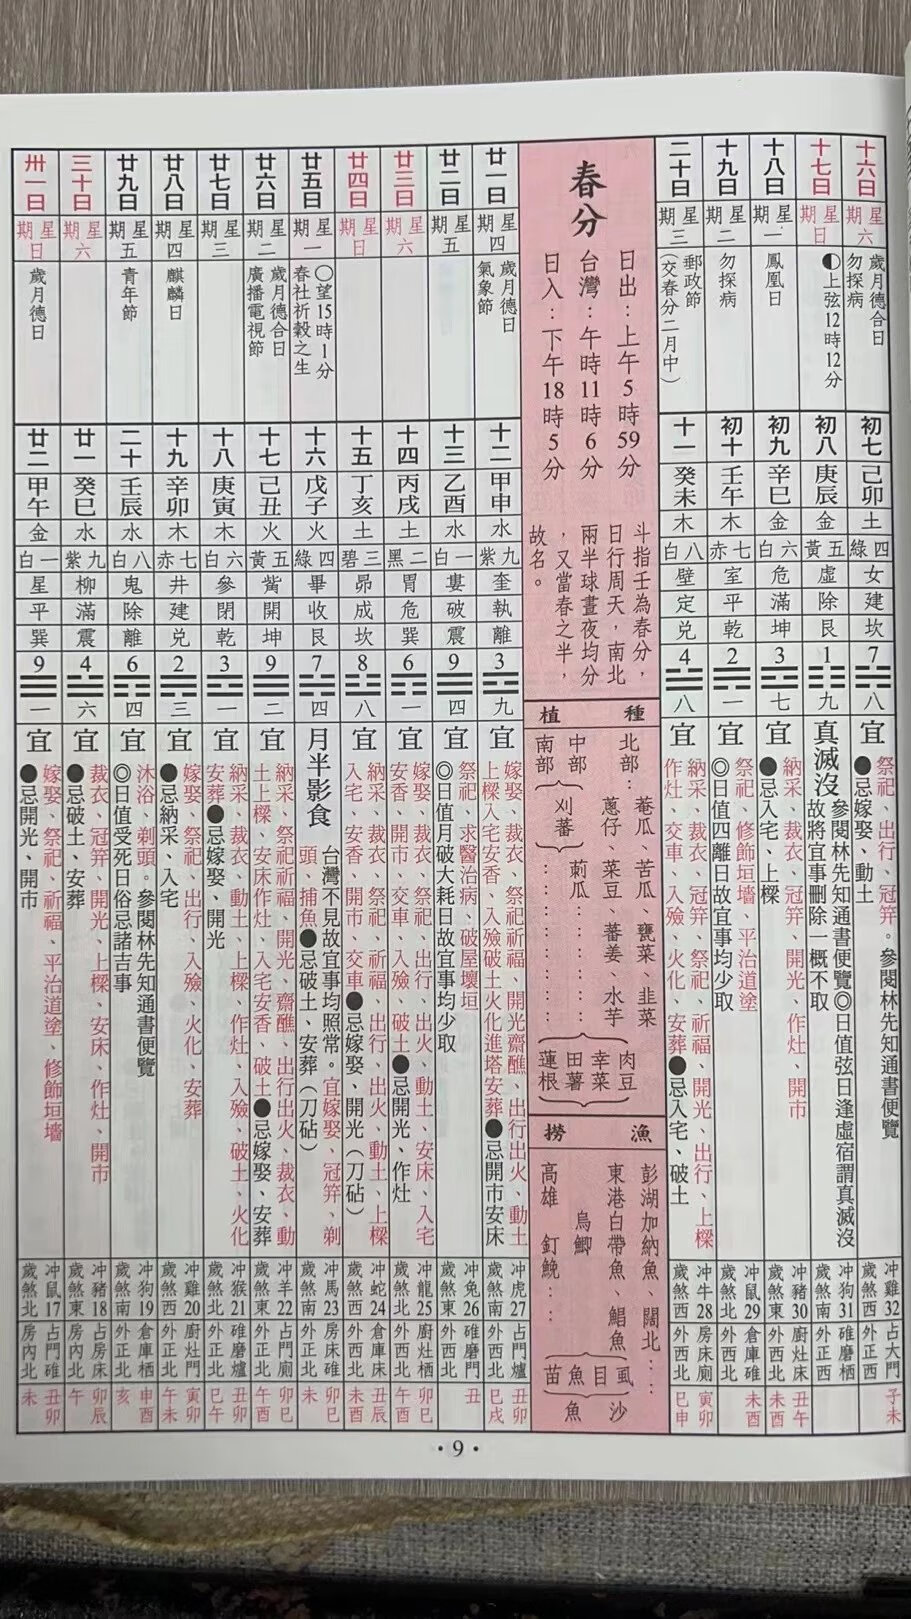 十六日
星期六
歲月德合日
勿探病
初七
己卯
土
四綠
女
建
坎
7
八
宜
祭祀、出行、冠笄。參閱林先知通書便覽
●忌嫁娶、動土
冲雞32
歲煞西
占大門
外正西
子未
十七日
星期日
◐上弦12時12分
初八
庚辰
金
五黃
虛
除
艮
1
九
真滅沒
參閱林先知通書便覽◎日值弦日逢虛宿謂真滅沒
故將宜事刪除一概不取
冲狗31
歲煞南
碓磨栖
外正西
十八日
星期一
鳳凰日
初九
辛巳
金
六白
危
滿
坤
3
七
宜
納采、裁衣、冠笄、開光、作灶、開市
●忌入宅、上樑
冲豬30
歲煞東
廚灶床
外正西
丑午
未酉
十九日
星期二
勿探病
初十
壬午
木
七赤
室
平
乾
2
一
宜
祭祀、修飾垣墻、平治道塗
◎日值四離日故宜事均少取
冲鼠29
歲煞北
倉庫碓
外西北
未酉
二十日
星期三
郵政節
(交春分二月中)
十一
癸未
木
八白
壁
定
兌
4
八
宜
納采、裁衣、冠笄、祭祀、祈福、開光、出行、上樑
作灶、交車、入殮、火化、安葬●忌入宅、破土
冲牛28
歲煞西
房床廁
外西北
寅卯
巳申
春分
日出：上午5時59分
台灣：午時11時6分
日入：下午18時5分
斗指壬為春分，
日行周天，南北
兩半球晝夜均分
，又當春之半，
故名。
種植
北部：菴瓜、苦瓜、甕菜、韭菜
蔥仔、菜豆、蕃姜、水芋
中部
南部
刈蕃
莿瓜
肉豆
幸菜
田薯
蓮根
漁撈
彭湖加納魚、闊北：
東港白帶魚、鯧魚
烏鯽
高雄 釘鮸：
虱目魚苗
沙魚
廿一日
星期四
歲月德日
氣象節
十二
甲申
水
九紫
奎
執
離
3
九
宜
嫁娶、裁衣、祭祀祈福、開光齋醮、出行出火、動土
上樑入宅安香、入殮破土火化進塔安葬●忌開市安床
冲虎27
歲煞南
占門爐
外西北
丑卯
巳戌
廿二日
星期五
十三
乙酉
水
一白
婁
破
震
9
四
宜
祭祀、求醫治病、破屋壞垣
◎日值月破大耗日故宜事均少取
冲兔26
歲煞東
碓磨門
外西北
丑
廿三日
星期六
十四
丙戌
土
二黑
胃
危
巽
6
一
宜
嫁娶、裁衣、祭祀、出行、出火、動土、安床、入宅
安香、開市、交車、入殮、破土●忌開光、作灶
冲龍25
歲煞北
廚灶栖
外西北
卯巳
廿四日
星期日
十五
丁亥
土
三碧
昴
成
坎
8
八
宜
納采、裁衣、祭祀、祈福、出行、出火、動土、上樑
入宅、安香、開市、交車●忌嫁娶、開光(刀砧)
冲蛇24
歲煞西
倉庫床
外西北
丑辰
未酉
廿五日
星期一
○望15時1分
春社祈穀之生
十六
戊子
火
四綠
畢
收
艮
7
四
月半影食
台灣不見故宜事均照常。宜嫁娶、冠笄、剃
頭、捕魚●忌破土、安葬(刀砧)
冲馬23
歲煞南
房床碓
外正北
卯巳
未
廿六日
星期二
歲月德合日
廣播電視節
十七
己丑
火
五黃
觜
開
坤
9
二
宜
納采、祭祀祈福、開光、齋醮、出行出火、裁衣、動
土上樑、安床作灶、入宅安香、破土●忌嫁娶、安葬
冲羊22
歲煞東
占門廁
外正北
卯巳
午酉
廿七日
星期三
十八
庚寅
木
六白
參
閉
乾
3
一
宜
納采、裁衣、動土、上樑、作灶、入殮、破土、火化
安葬●忌嫁娶、開光
冲猴21
歲煞北
碓磨爐
外正北
丑卯
巳午
廿八日
星期四
麒麟日
十九
辛卯
木
七赤
井
建
兌
2
三
宜
嫁娶、祭祀、出行、入殮、火化、安葬
●忌納采、入宅
冲雞20
歲煞西
廚灶門
外正北
寅卯
午未
廿九日
星期五
青年節
二十
壬辰
水
八白
鬼
除
離
6
四
宜
沐浴、剃頭。參閱林先知通書便覽
◎日值受死日俗忌諸吉事
冲狗19
歲煞南
倉庫栖
外正北
申酉
亥
三十日
星期六
廿一
癸巳
水
九紫
柳
滿
震
4
六
宜
裁衣、冠笄、開光、上樑、安床、作灶、開市
●忌破土、安葬
冲豬18
歲煞東
占房床
房內北
卯辰
午
卅一日
星期日
歲月德日
廿二
甲午
金
一白
星
平
巽
9
一
宜
嫁娶、祭祀、祈福、平治道塗、修飾垣墻
●忌開光、開市
冲鼠17
歲煞北
占門碓
房內北
丑卯
未
·9·